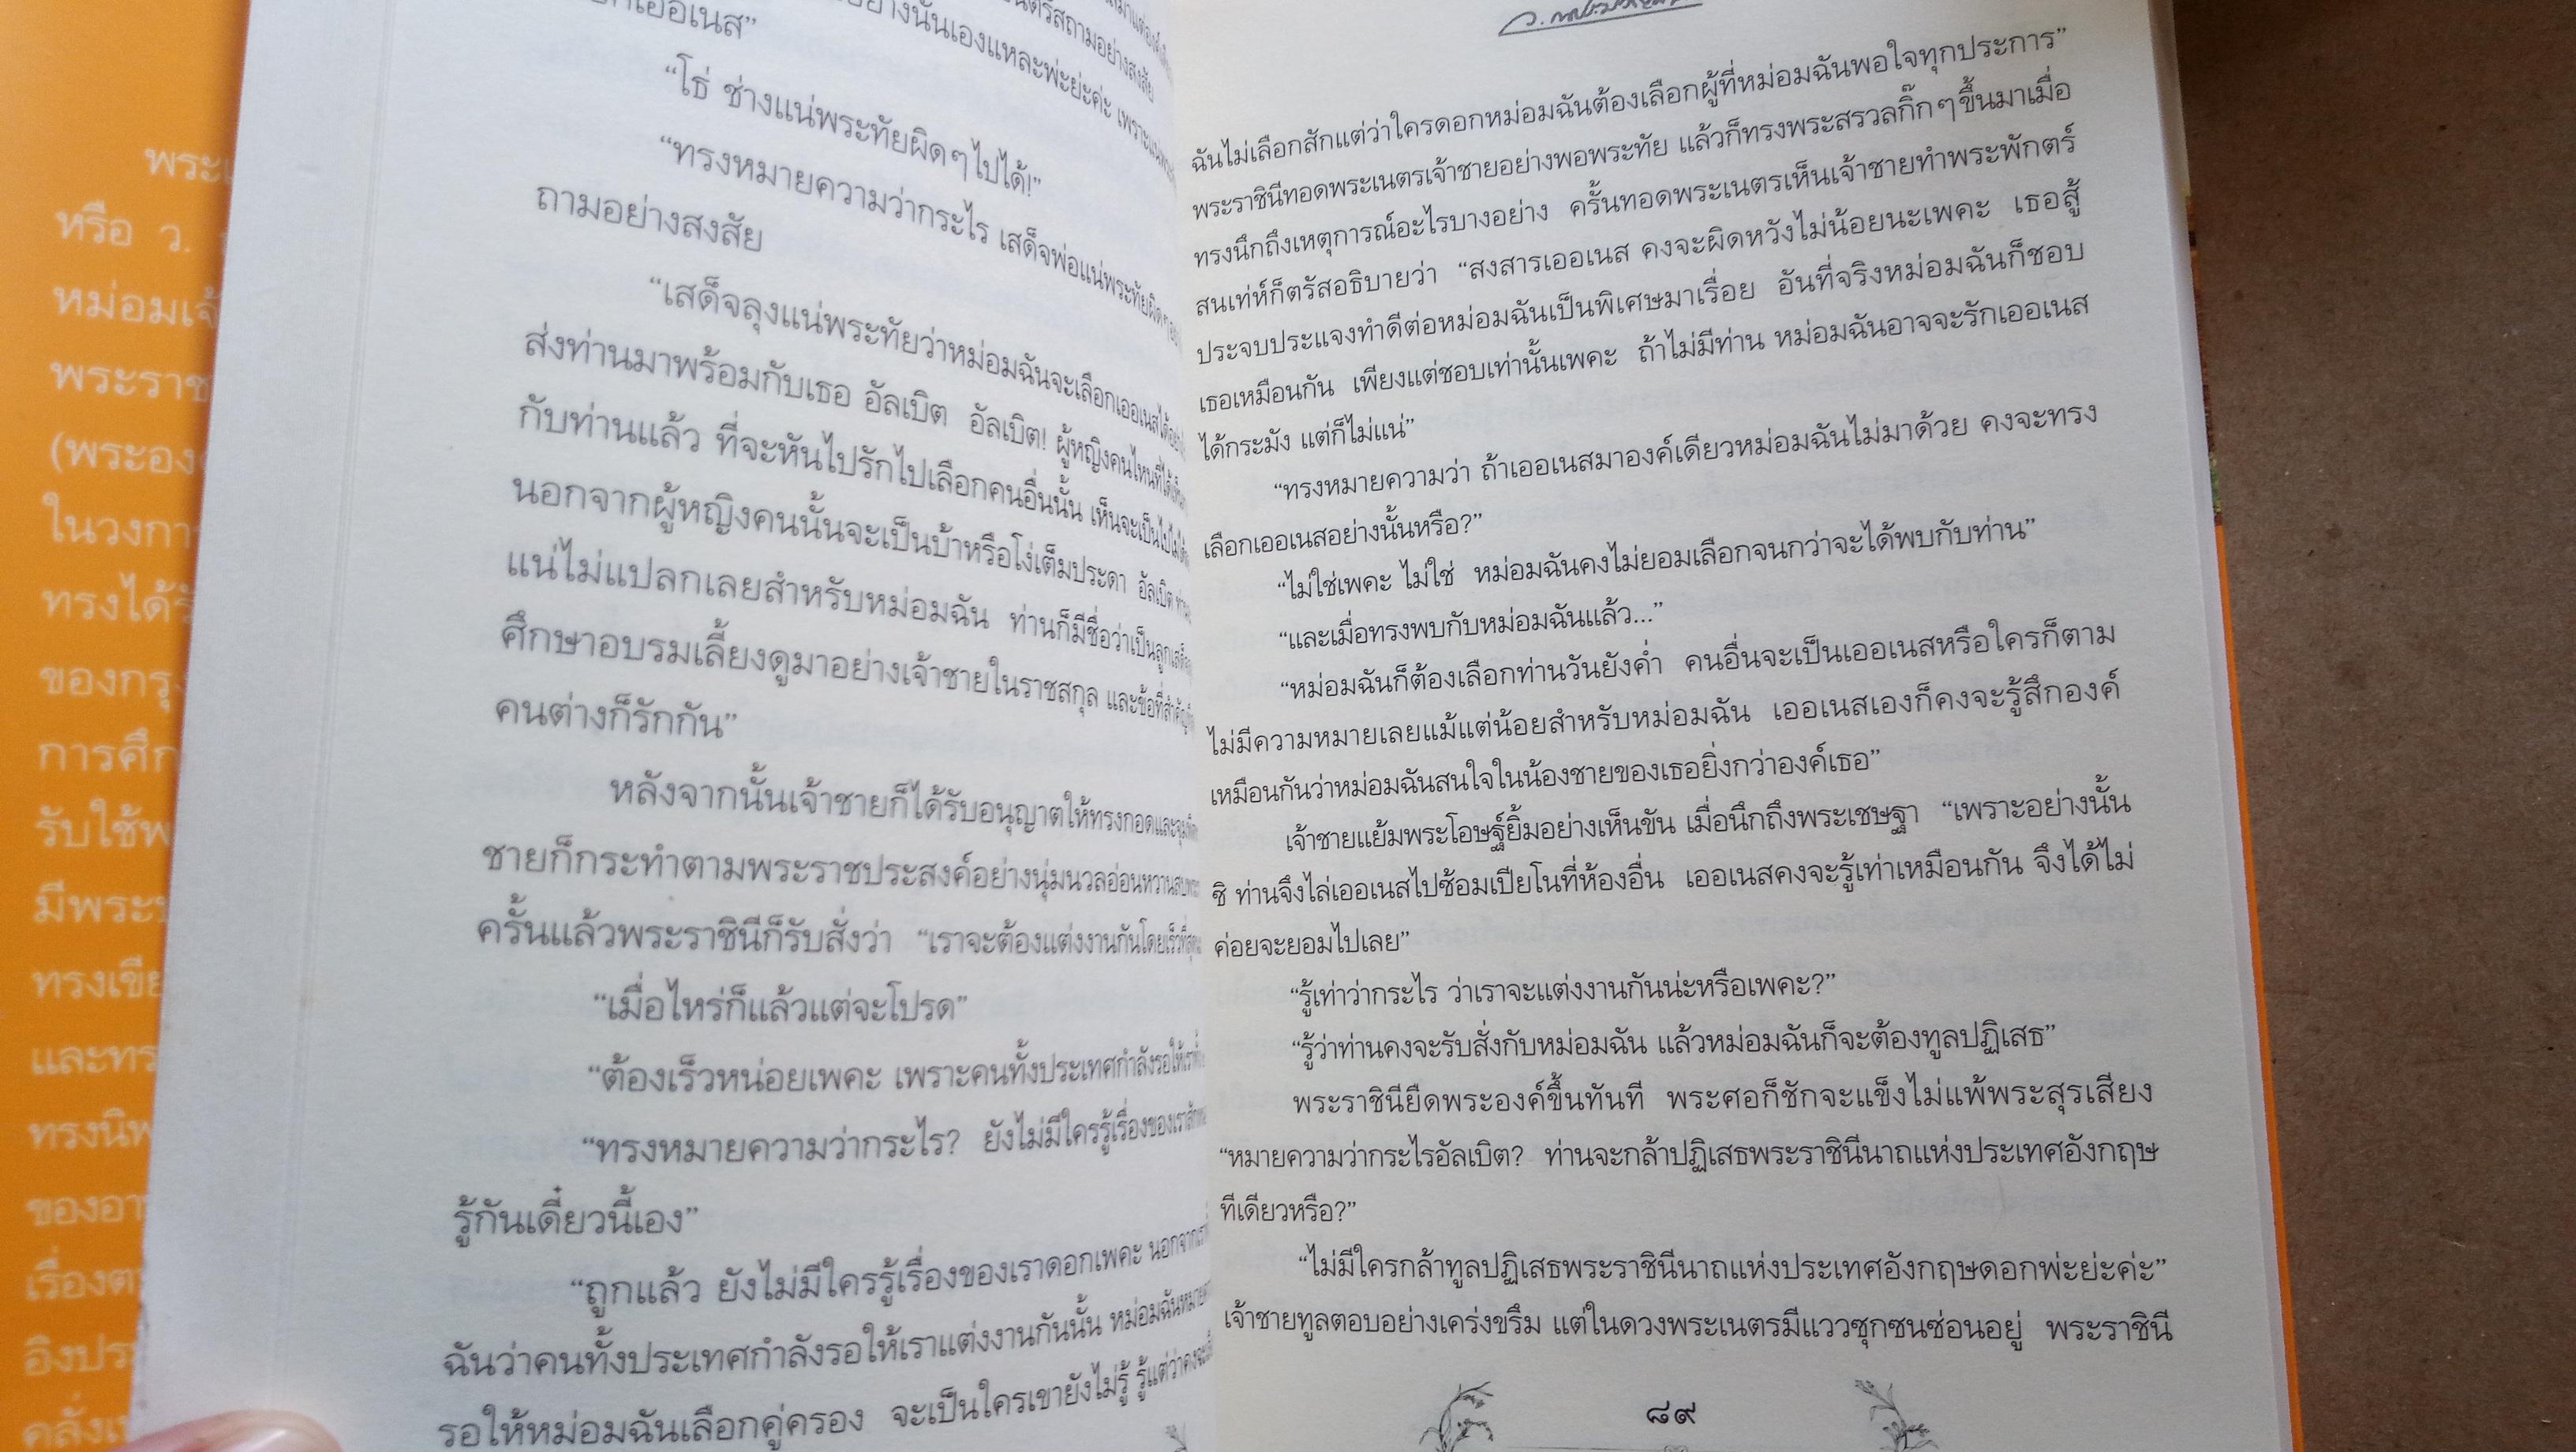 พระ
หรือ ว.
หม่อมเจ้
พระราช
(พระอง
ในวงกา
ทรงได้รั
ของกรุ
การศึก
รับใช้พ
มีพระ
ทรงเขีย
และทร
ทรงนิพ
ของอา
เรื่องต
อิงประ
คลั่ง
อย่างนั้นเองแหละพ่ะย่ะค่ะ เพราะ
“โธ่ ช่างแน่พระทัยผิดๆไปได้!”
“ทรงหมายความว่ากระไร เสด็จพ่อแน่พระทัยผิด
ถามอย่างสงสัย
“เสด็จลุงแน่พระทัยว่าหม่อมฉันจะเลือกเออเนสได้
ส่งท่านมาพร้อมกับเธอ อัลเบิต อัลเบิต! ผู้หญิงคนไหนที่ได้
กับท่านแล้ว ที่จะหันไปรักไปเลือกคนอื่นนั้น เห็นจะเป็นไปไม่ได้
นอกจากผู้หญิงคนนั้นจะเป็นบ้าหรือโง่เต็มประดา อัลเบิต ท่าน
แน่ไม่แปลกเลยสำหรับหม่อมฉัน ท่านก็มีชื่อว่าเป็นลูกเสด็จ
ศึกษาอบรมเลี้ยงดูมาอย่างเจ้าชายในราชสกุล และข้อที่สำคัญ
คนต่างก็รักกัน”
หลังจากนั้นเจ้าชายก็ได้รับอนุญาตให้ทรงกอดและจุมพิต
ชายก็กระทำตามพระราชประสงค์อย่างนุ่มนวลอ่อนหวาน
ครั้นแล้วพระราชินีก็รับสั่งว่า “เราจะต้องแต่งงานกันโดยเร็วที่สุด
“เมื่อไหร่ก็แล้วแต่จะโปรด”
“ต้องเร็วหน่อยเพคะ เพราะคนทั้งประเทศกำลังรอให้เรา
“ทรงหมายความว่ากระไร? ยังไม่มีใครรู้เรื่องของเรา
รู้กันเดี๋ยวนี้เอง”
“ถูกแล้ว ยังไม่มีใครรู้เรื่องของเราดอกเพคะ นอกจากเรา
ฉันว่าคนทั้งประเทศกำลังรอให้เราแต่งงานกันนั้น หม่อมฉันหมาย
รอให้หม่อมฉันเลือกคู่ครอง จะเป็นใครเขายังไม่รู้ รู้แต่ว่าคงจะ
ฉันไม่เลือกสักแต่ว่าใครดอกหม่อมฉันต้องเลือกผู้ที่หม่อมฉันพอใจทุกประการ”
พระราชินีทอดพระเนตรเจ้าชายอย่างพอพระทัย แล้วก็ทรงพระสรวลกิ๊กๆขึ้นมาเมื่อ
ทรงนึกถึงเหตุการณ์อะไรบางอย่าง ครั้นทอดพระเนตรเห็นเจ้าชายทำพระพักตร์
สนเท่ห์ก็ตรัสอธิบายว่า “สงสารเออเนส คงจะผิดหวังไม่น้อยนะเพคะ เธอสู้
ประจบประแจงทำดีต่อหม่อมฉันเป็นพิเศษมาเรื่อย อันที่จริงหม่อมฉันก็ชอบ
เธอเหมือนกัน เพียงแต่ชอบเท่านั้นเพคะ ถ้าไม่มีท่าน หม่อมฉันอาจจะรักเออเนส
ได้กระมัง แต่ก็ไม่แน่”
“ทรงหมายความว่า ถ้าเออเนสมาองค์เดียวหม่อมฉันไม่มาด้วย คงจะทรง
เลือกเออเนสอย่างนั้นหรือ?”
“ไม่ใช่เพคะ ไม่ใช่ หม่อมฉันคงไม่ยอมเลือกจนกว่าจะได้พบกับท่าน”
“และเมื่อทรงพบกับหม่อมฉันแล้ว...”
“หม่อมฉันก็ต้องเลือกท่านวันยังค่ำ คนอื่นจะเป็นเออเนสหรือใครก็ตาม
ไม่มีความหมายเลยแม้แต่น้อยสำหรับหม่อมฉัน เออเนสเองก็คงจะรู้สึกองค์
เหมือนกันว่าหม่อมฉันสนใจในน้องชายของเธอยิ่งกว่าองค์เธอ”
เจ้าชายแย้มพระโอษฐ์ยิ้มอย่างเห็นขัน เมื่อนึกถึงพระเชษฐา “เพราะอย่างนั้น
ซิ ท่านจึงไล่เออเนสไปซ้อมเปียโนที่ห้องอื่น เออเนสคงจะรู้เท่าเหมือนกัน จึงได้ไม่
ค่อยจะยอมไปเลย”
“รู้เท่าว่ากระไร ว่าเราจะแต่งงานกันน่ะหรือเพคะ?”
“รู้ว่าท่านคงจะรับสั่งกับหม่อมฉัน แล้วหม่อมฉันก็จะต้องทูลปฏิเสธ”
พระราชินียืดพระองค์ขึ้นทันที พระศอก็ชักจะแข็งไม่แพ้พระสุรเสียง
“หมายความว่ากระไรอัลเบิต? ท่านจะกล้าปฏิเสธพระราชินีนาถแห่งประเทศอังกฤษ
ทีเดียวหรือ?”
“ไม่มีใครกล้าทูลปฏิเสธพระราชินีนาถแห่งประเทศอังกฤษดอกพ่ะย่ะค่ะ”
เจ้าชายทูลตอบอย่างเคร่งขรึม แต่ในดวงพระเนตรมีแววซุกซนซ่อนอยู่ พระราชินี
๘๙